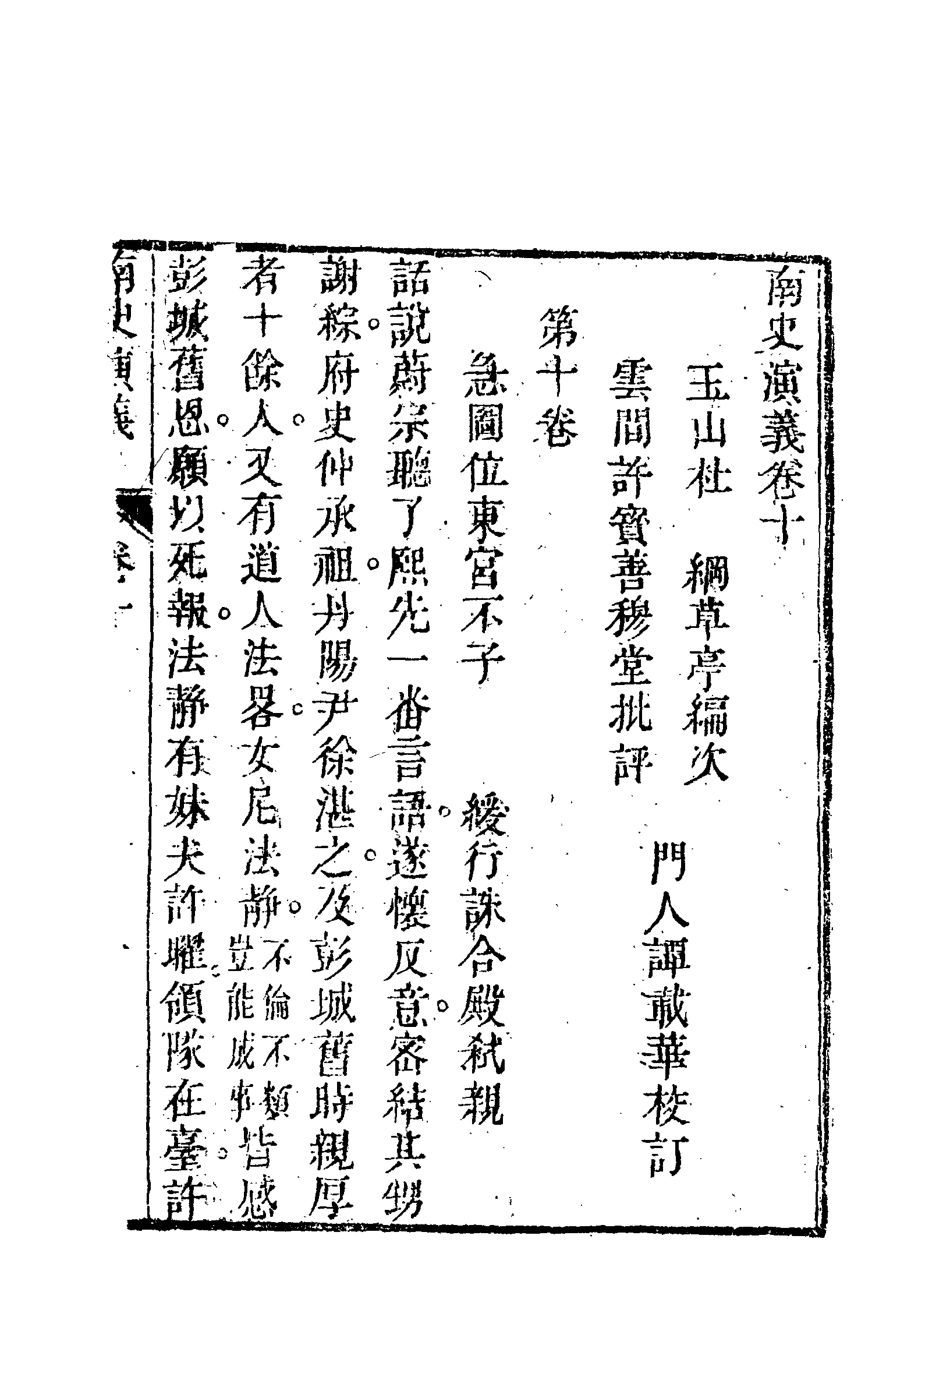 南史演義卷十
玉山杜　綱草亭編次
雲間許寶善穆堂批評
門人譚載華校訂
第十卷
急圖位東宮不子　緩行誅合殿弒親
話說蔚宗聽了熙先一番言語。遂懷反意。密結其甥
謝綜。府史仲承祖。丹陽尹徐湛之。及彭城舊時親厚
者十餘人。又有道人法畧。女尼法靜。不倫不類豈能成事皆感
彭城舊恩。願以死報。法靜有妹夫許曜。領隊在臺。許
南史演義　卷十　一